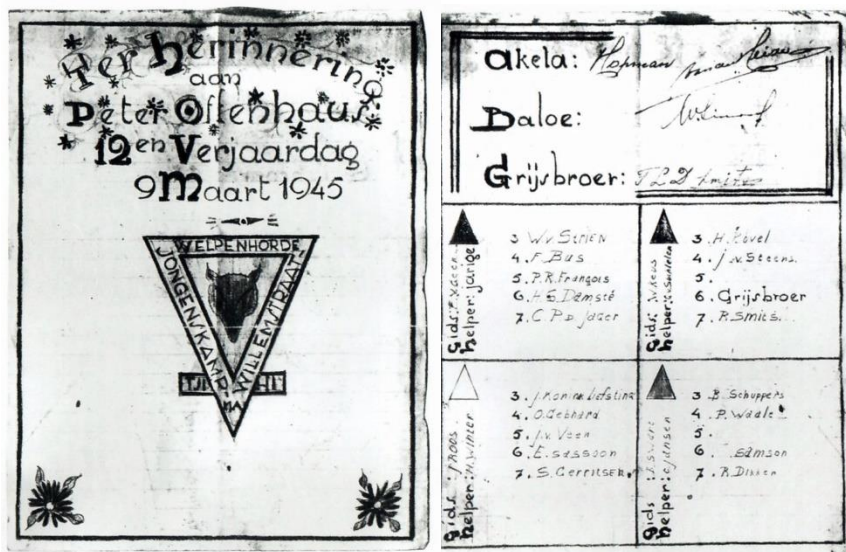 Ter herinnering
aan
Peter Offenhaus
12en Verjaardag
9 Maart 1945
WELPENHORDE
JONGENSKAMP-
WILLEMSTRAAT-
MA
Akela: Hopman
Baloe:
Grijsbroer: T L D Smits
Gids:
helper: jarige
3 W.v STRIEN
4. F. Bus
5. P.R. François
6. H.S. Damsté
7. C P D. Jager
Gids:
helper:
3. H. Kövel
4. J v. Steens
5.
6. Grijsbroer
7. R. Smits.
Gids: J ROOS
helper: H. WINTER
3. J. Konink Liefsting
4. O. Gebhard
5. J. v. Veen
6. E. SASSOON
7. S. GERRITSEN
Gids:
helper: C JANSEN
3 B. Schuppers
4. P. Waale
5.
6 SAMSON
7. R. Dikken